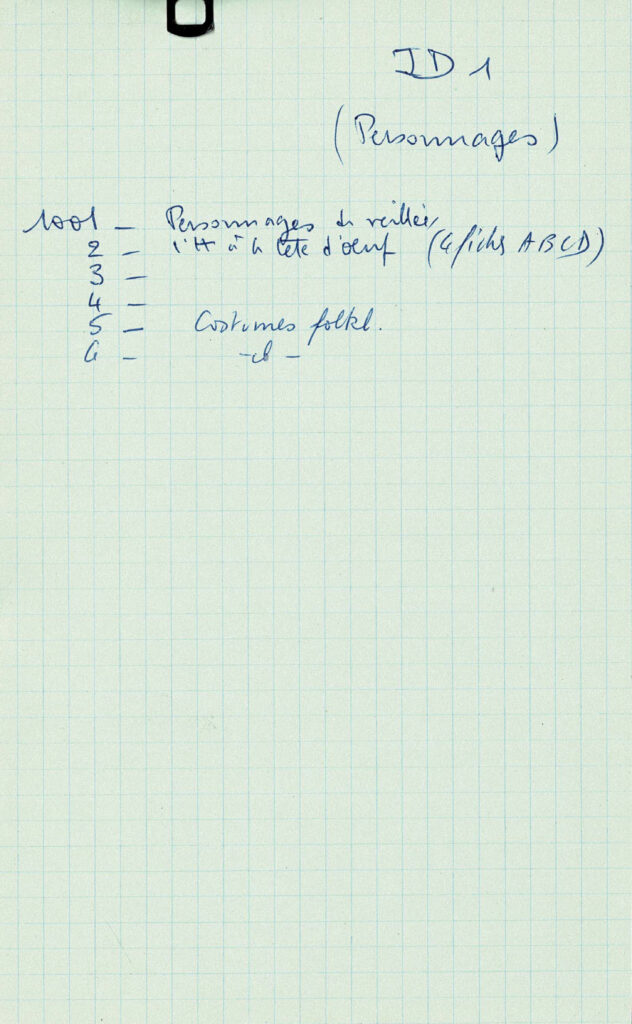 ID 1
(Personnages)
1001 - Personnages de veillées
2 - l'H à la tête d'oeuf (4 fiches ABCD)
3 -
4 -
5 - Costumes folkl.
6 - -d-